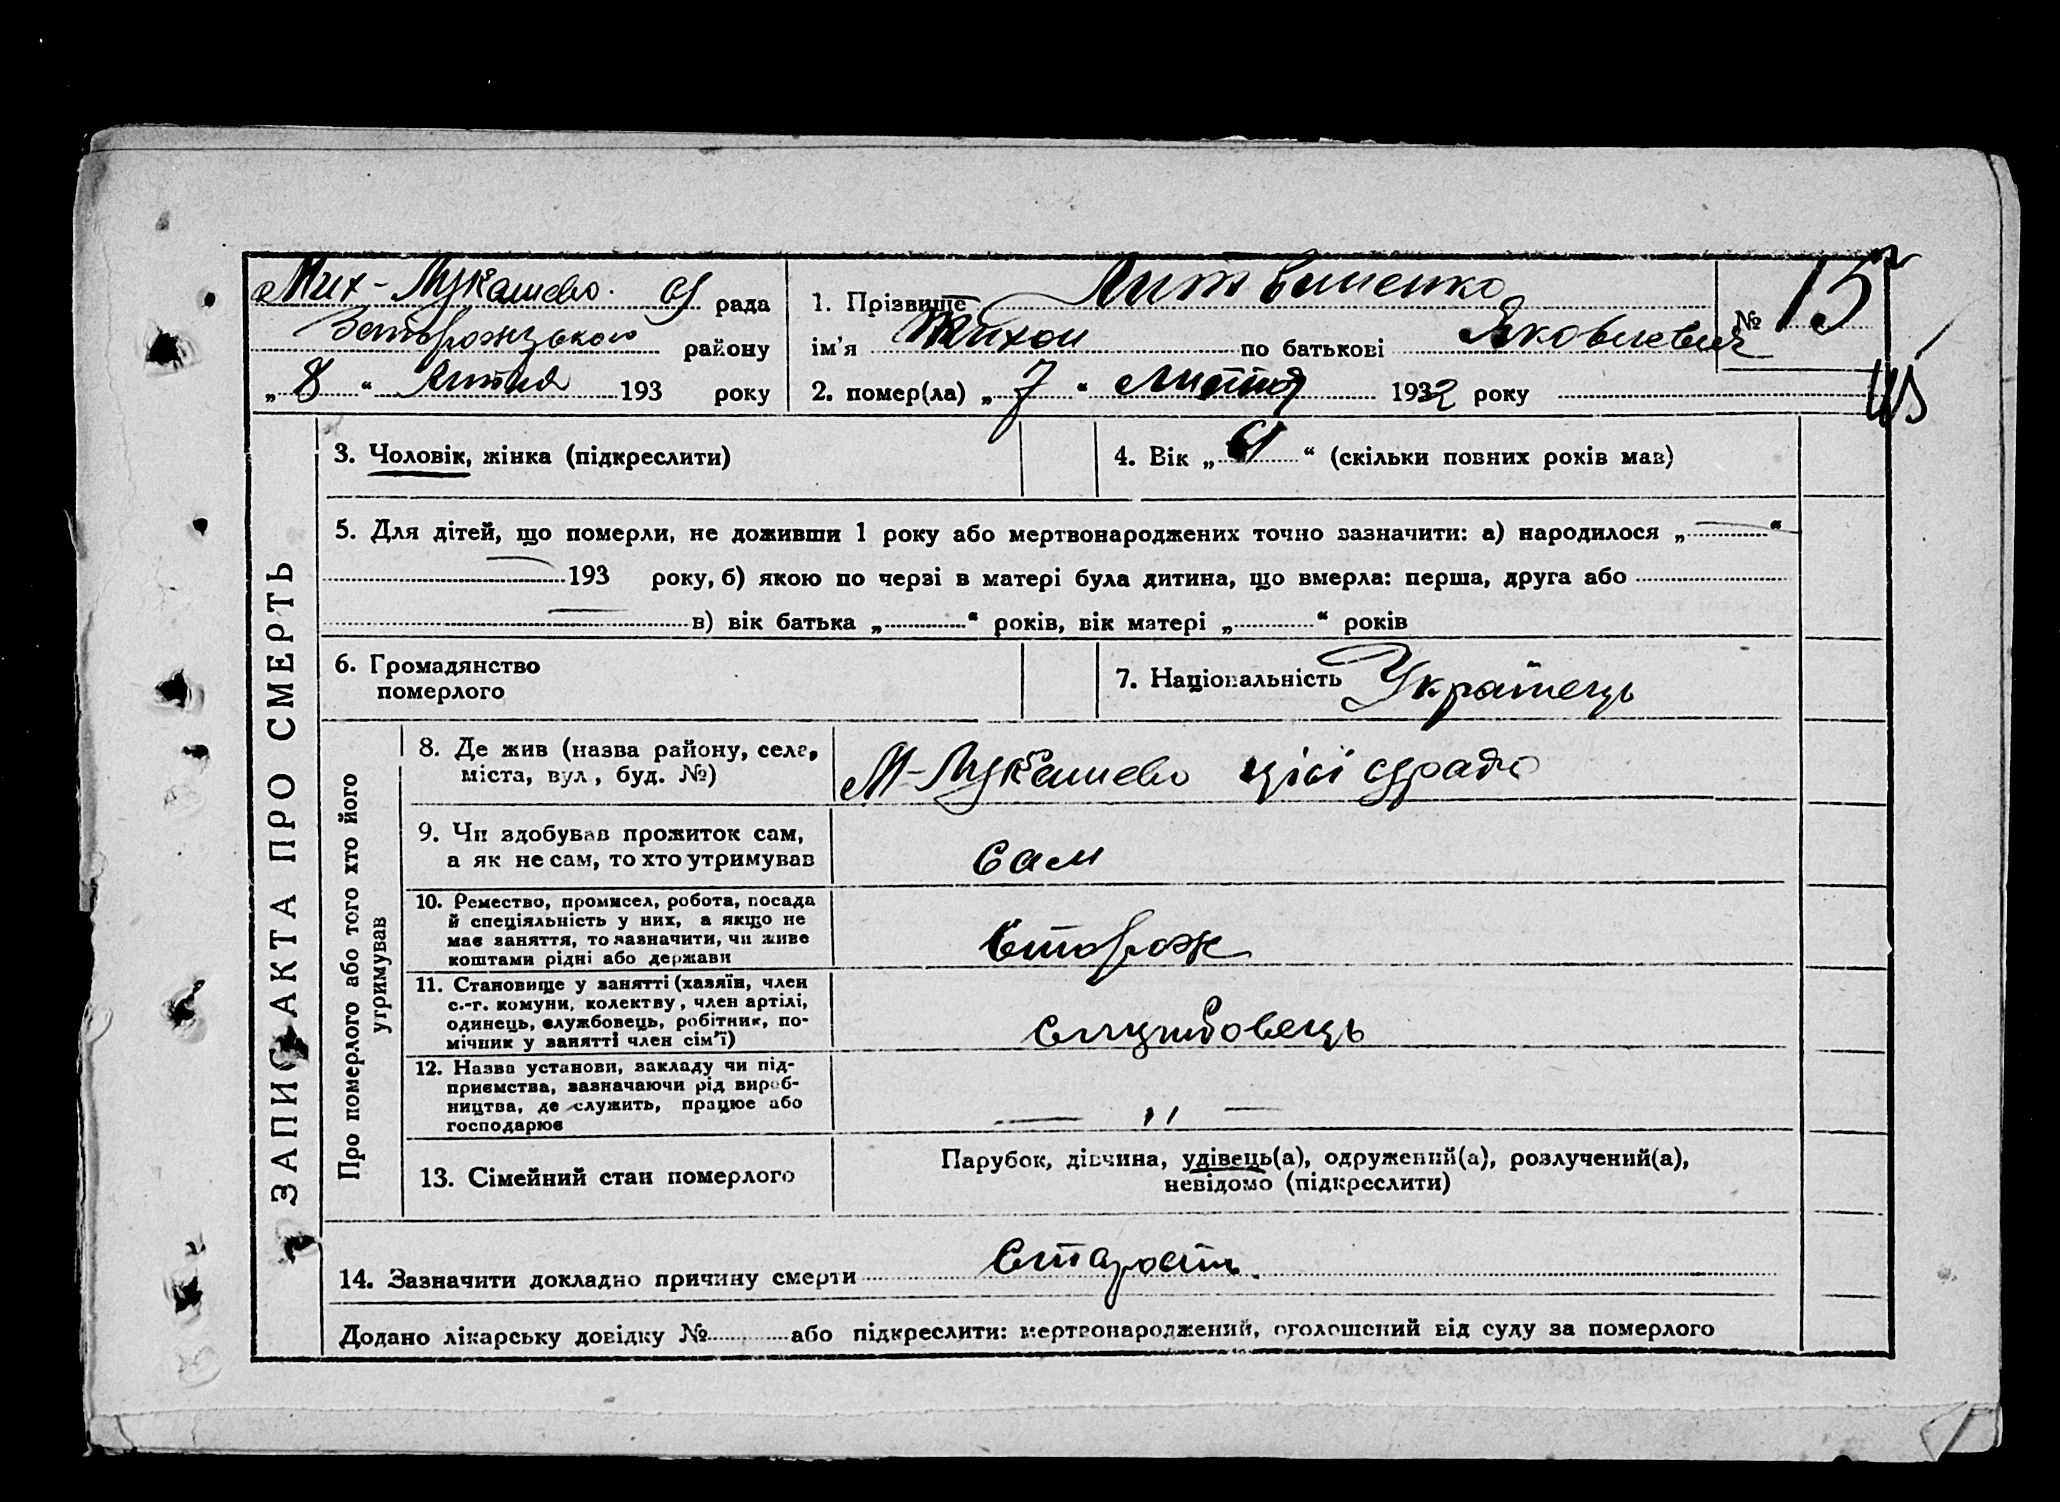 Мих-Лукашево с/ рада
Запорожського району
„8“ Лютня 193 року
1. Прізвище Литвиненко
ім’я Тихон по батькові Яковлевич
№ 15
2. помер(ла) „7“ Лютня 1932 року
ЗАПИС АКТА ПРО СМЕРТЬ
3. Чоловік, жінка (підкреслити)
4. Вік „61“ (скільки повних років мав)
5. Для дітей, що померли, не доживши 1 року або мертвонароджених точно зазначити: а) народилося „ — “
— 193 року, б) якою по черзі в матері була дитина, що вмерла: перша, друга або
— в) вік батька „ “ років, вік матері „ “ років
6. Громадянство
померлого
7. Національність Українець
Про померлого або того хто його
утримував
8. Де жив (назва району, села,
міста, вул., буд. №)
М-Лукашево цієї с/ради
9. Чи здобував прожиток сам,
а як не сам, то хто утримував
Сам
10. Ремество, промисел, робота, посада
й спеціяльність у них, а якщо не
має заняття, то зазначити, чи живе
коштами рідні або держави
Сторож
11. Становище у занятті (хазяїн, член
с.-г. комуни, колектву, член артілі,
одинець, службовець, робітник, по-
мічник у занятті член сім’ї)
Службовець
12. Назва установи, закладу чи під-
приємства, зазначаючи рід вироб-
ництва, де служить, працює або
господарює
— " —
13. Сімейний стан померлого
Парубок, дівчина, удівець(а), одружений(а), розлучений(а),
невідомо (підкреслити)
14. Зазначити докладно причину смерти Старость.
Додано лікарську довідку № або підкреслити: мертвонароджений, оголошений від суду за померлого